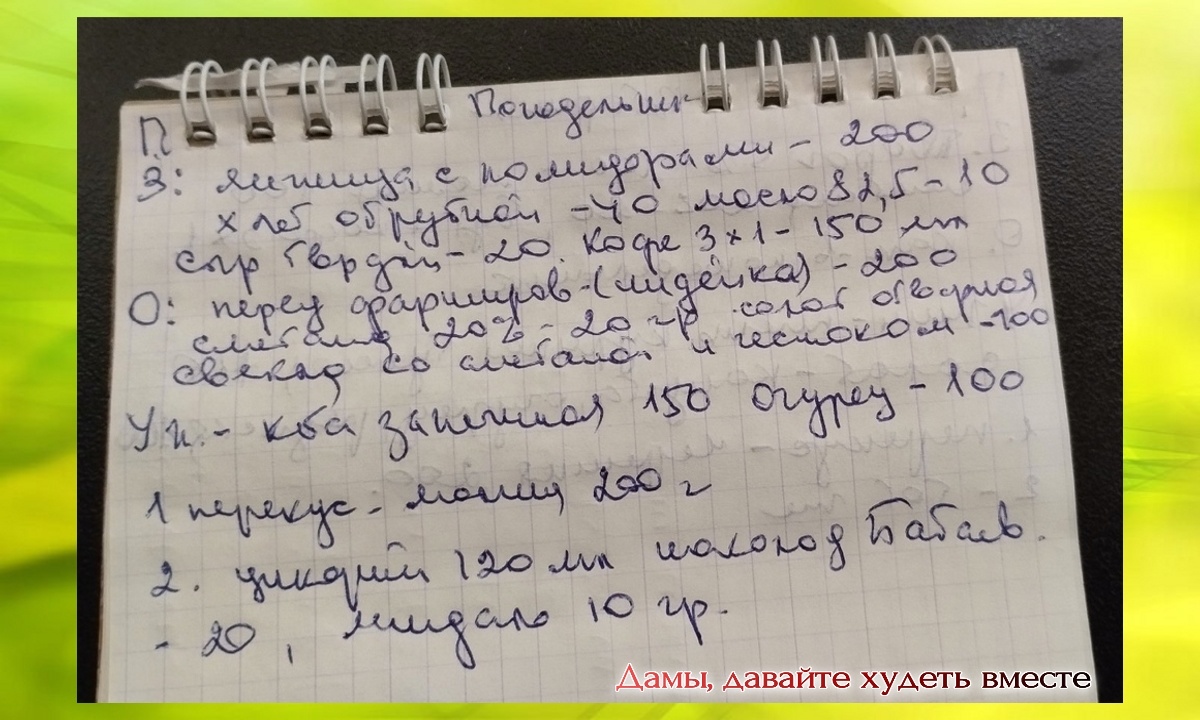 П Понедельник
З: яичница с помидорами - 200
хлеб обрубной - 40 масло 82,5 - 10
сыр твердый - 20. Кофе 3х1 - 150 мл
О: перец фарширов. (индейка) - 200
сметана 20% - 20 гр салат отварная
свекла со сметаной и чесноком - 100
Уж. - к-ба запечная 150 огурец - 100
1 перекус - 200 г
2. цикорий 120 мл шоколад Бабаев.
- 20, миндаль 10 гр.
Дамы, давайте худеть вместе